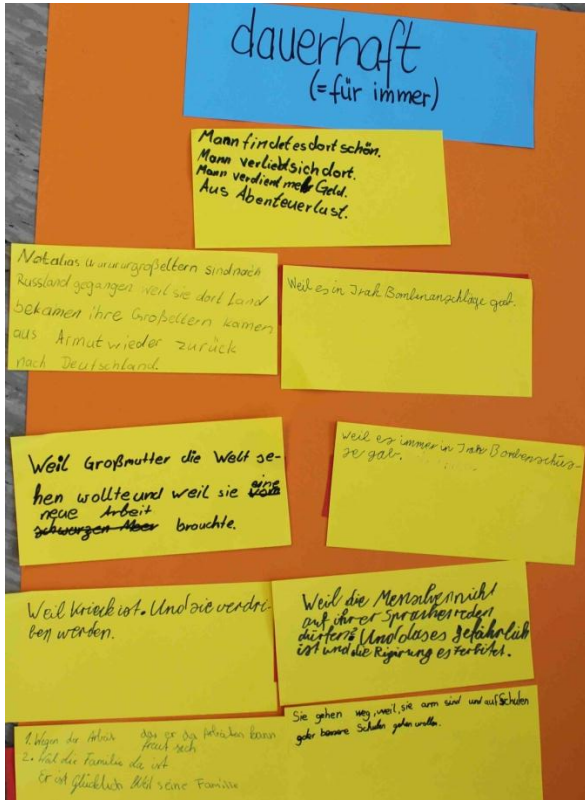 dauerhaft
(=für immer)
Mann findet es dort schön.
Mann verliebt sich dort.
Mann verdient mehr Geld.
Aus Abenteuerlust.
Natalias urururgroßeltern sind nach
Russland gegangen weil sie dort Land
bekamen ihre Großeltern kamen
aus Armut wieder zurück
nach Deutschland.
Weil es in Irak Bombenanschläge gab.
Weil Großmutter die Welt se-
hen wollte und weil sie eine
neue Arbeit
schwarzen Meer brouchte.
weil es immer in Irak Bombenschüs-
se gab.
Weil Krieck ist. Und sie verdri-
ben werden.
Weil die Menschen nicht
auf ihrer Sprache reden
dürfen. Und das es gefährlich
ist und die Rigirung es ferbitet.
1. Wegen der Arbeit das er da Arbeiten kann
freut sich
2. Weil die Familie da ist
Er ist Glücklich Weil seine Familie
Sie gehen weg, weil sie arm sind und auf Schulen
oder bessere Schulen gehen wollen.